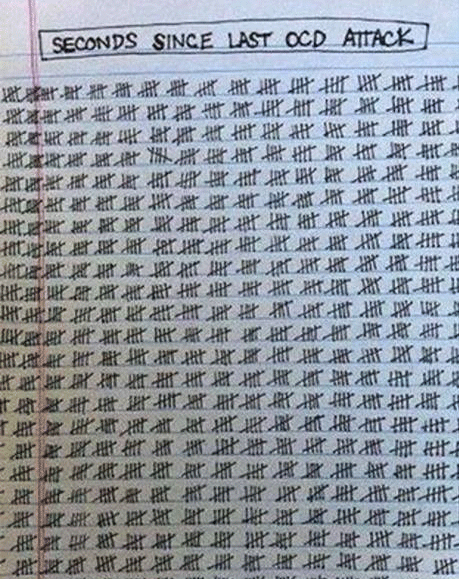 SECONDS SINCE LAST OCD ATTACK